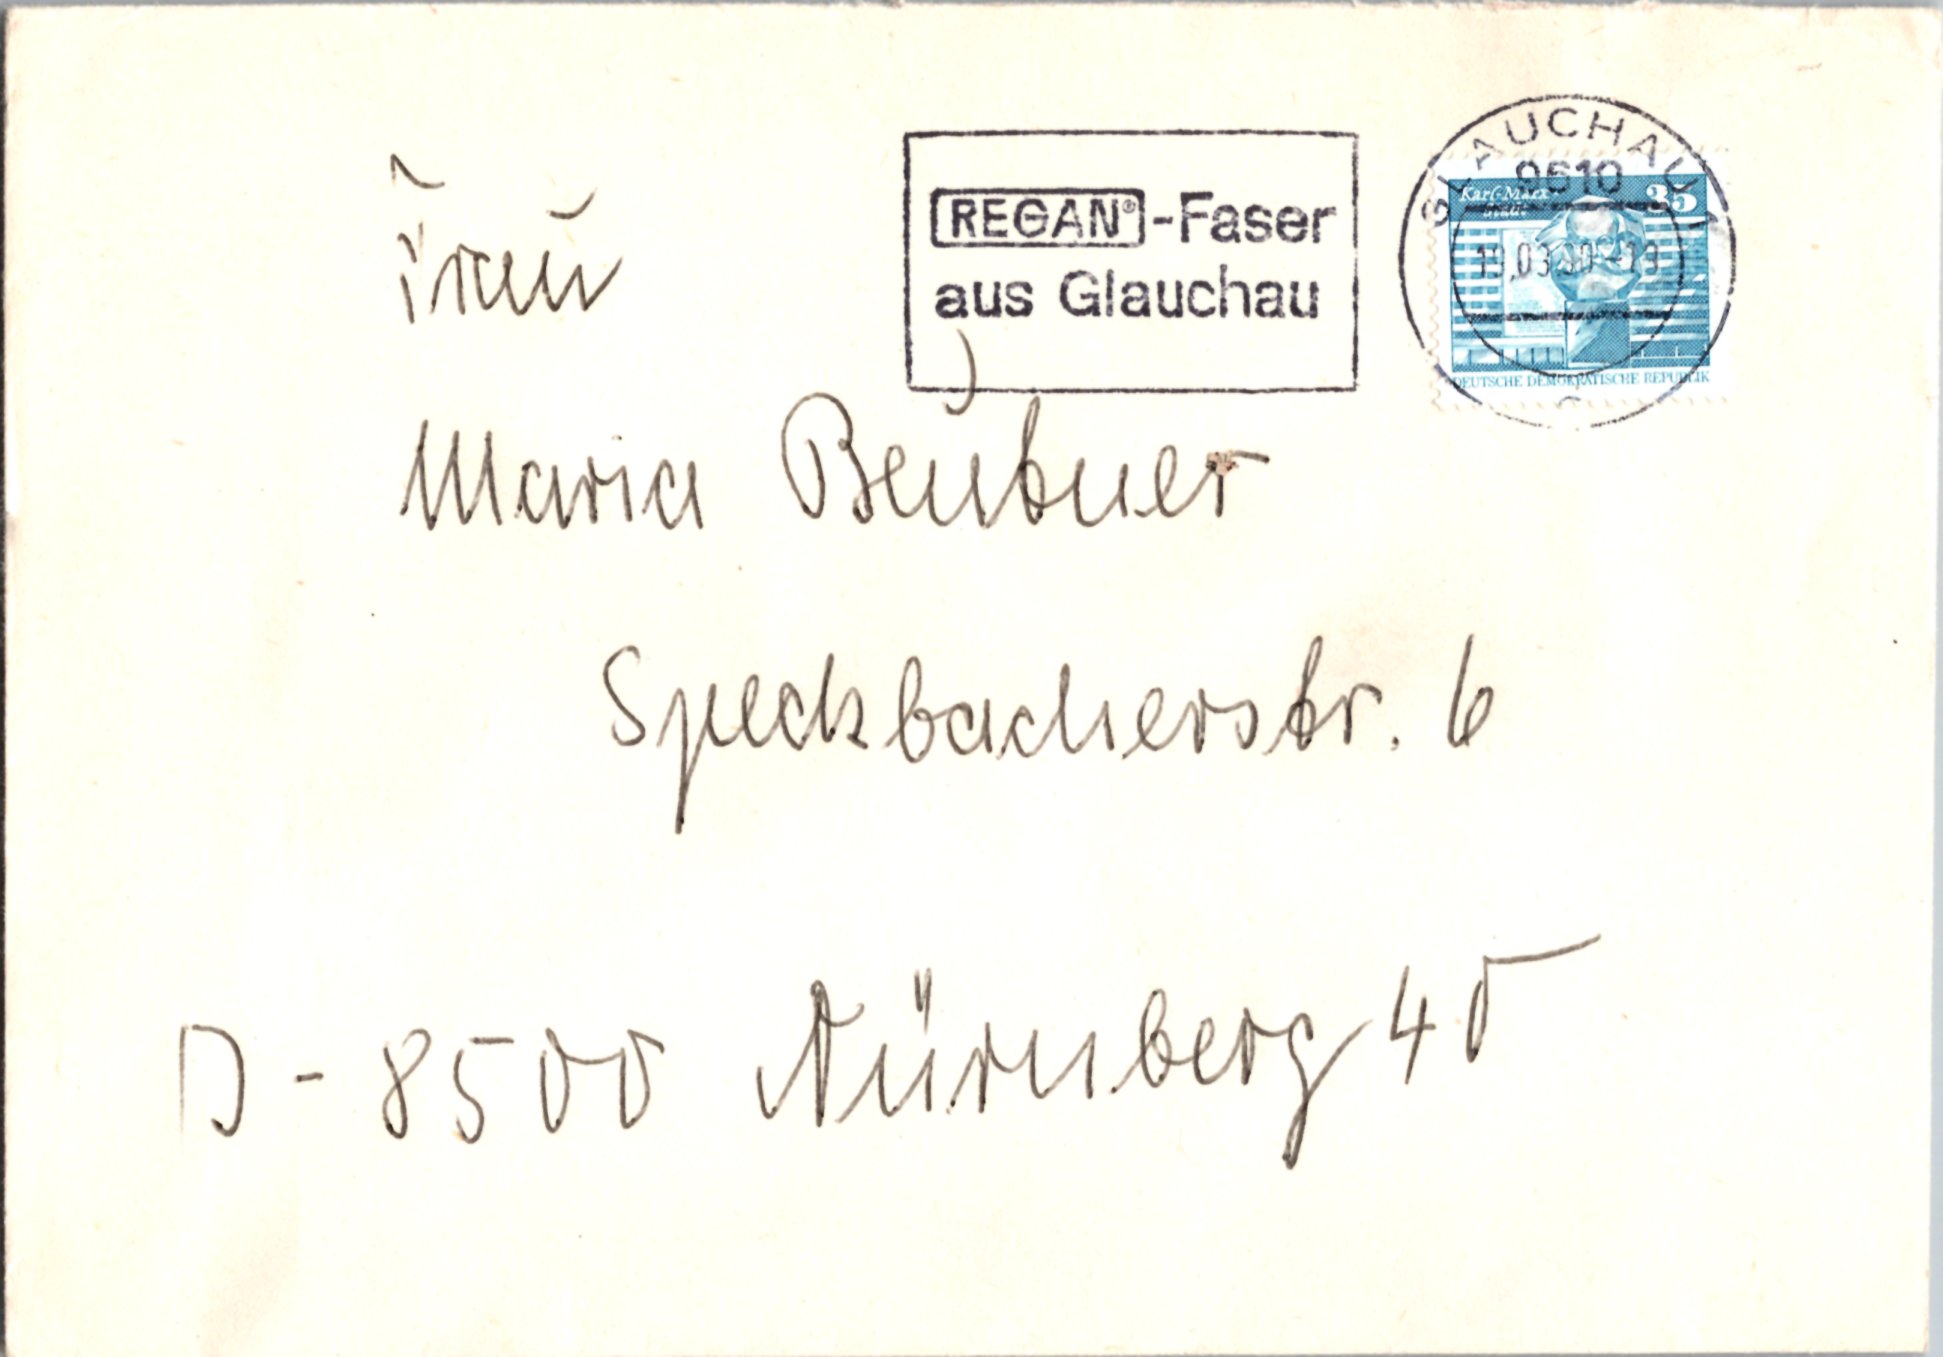 REGAN®-Faser
aus Glauchau
GLAUCHAU 1
9610
19.03.80-19
c
Karl-Marx-
Stadt
35
DEUTSCHE DEMOKRATISCHE REPUBLIK
Frau
Maria Beubner
Speckbacherstr. 6
D-8500 Nürnberg 40